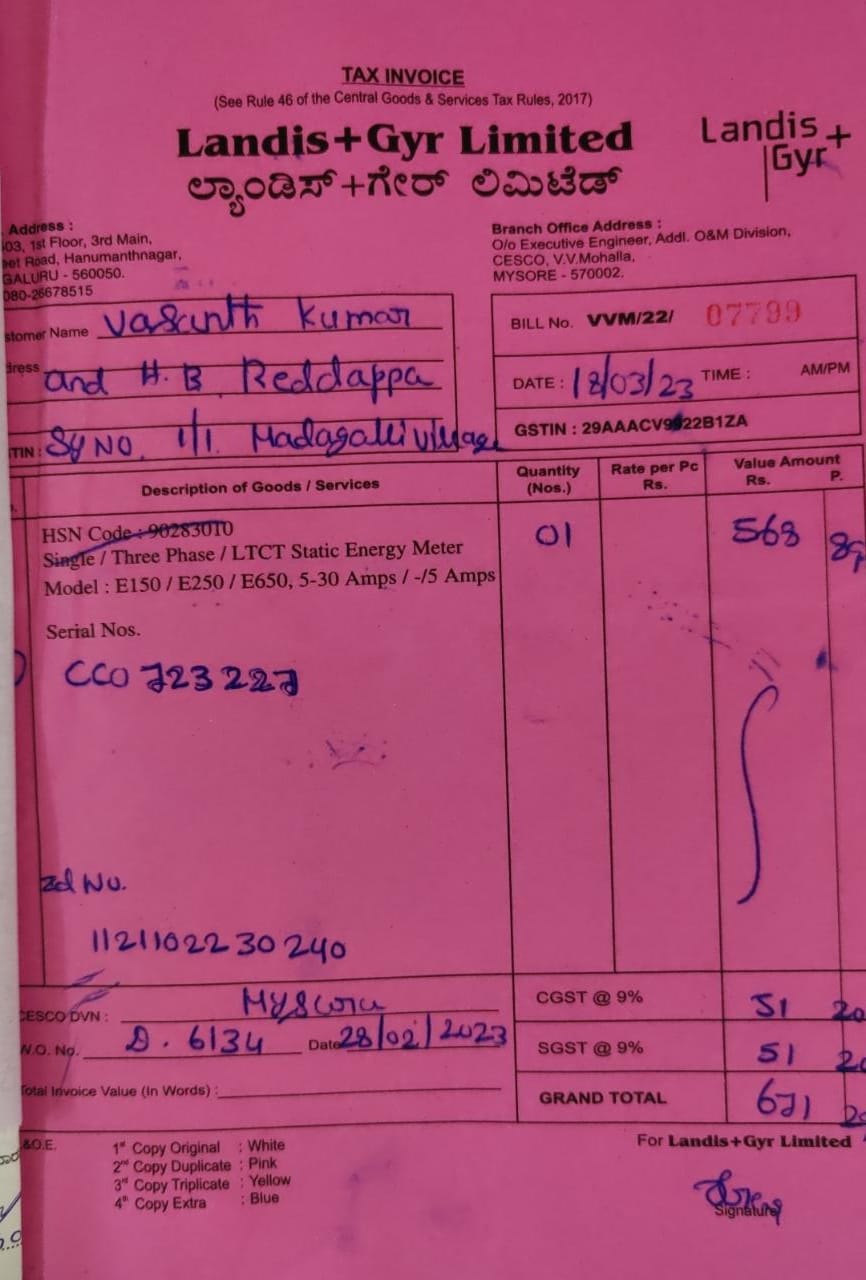 TAX INVOICE
(See Rule 46 of the Central Goods & Services Tax Rules, 2017)
Landis+Gyr Limited
Landis+
Gyr
ಲ್ಯಾಂಡಿಸ್+ಗೇರ್ ಲಿಮಿಟೆಡ್
Address :
03, 1st Floor, 3rd Main,
eet Road, Hanumanthnagar,
GALURU - 560050.
080-26678515
Branch Office Address :
O/o Executive Engineer, Addl. O&M Division,
CESCO, V.V.Mohalla,
MYSORE - 570002.
stomer Name Vasanth Kumar
dress and H.B. Reddappa
TIN : Sy NO. 1/1. Madagalli village
BILL No. VVM/22/ 07799
DATE : 18/03/23 TIME : AM/PM
GSTIN : 29AAACV9 22B1ZA
Description of Goods / Services Quantity (Nos.) Rate per Pc Rs. Value Amount Rs. P.
HSN Code : 90283010 01 568
Single / Three Phase / LTCT Static Energy Meter
Model : E150 / E250 / E650, 5-30 Amps / -/5 Amps
Serial Nos.
CCO 723227
No.
1121102230240
CESCO DVN : Mysore
W.O. No. D. 6134 Date 28/02/2023
Total Invoice Value (In Words) :
CGST @ 9% 51 20
SGST @ 9% 51 20
GRAND TOTAL 671
&O.E.
1st Copy Original : White
2nd Copy Duplicate : Pink
3rd Copy Triplicate : Yellow
4th Copy Extra : Blue
For Landis+Gyr Limited
Signature